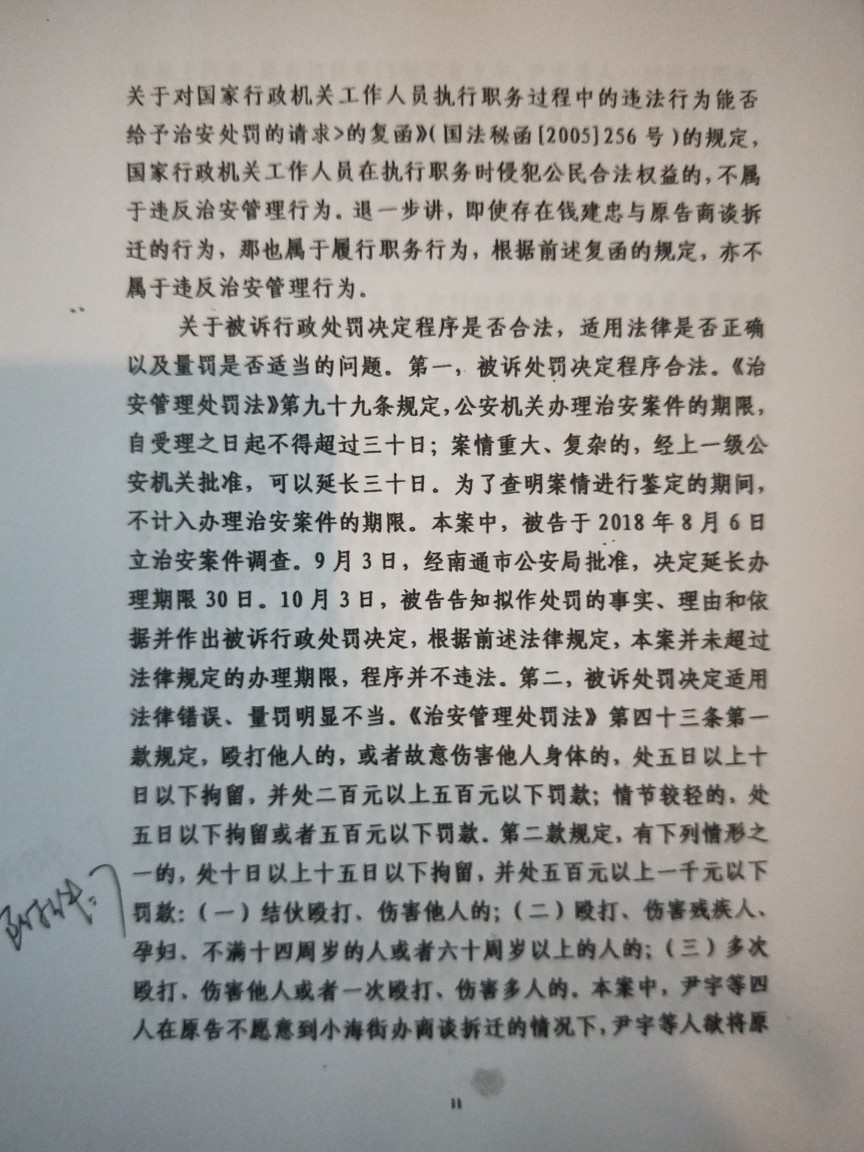 关于对国家行政机关工作人员执行职务过程中的违法行为能否
给予治安处罚的请求>的复函》(国法秘函[2005]256号)的规定，
国家行政机关工作人员在执行职务时侵犯公民合法权益的，不属
于违反治安管理行为。退一步讲，即使存在钱建忠与原告商谈拆
迁的行为，那也属于履行职务行为，根据前述复函的规定，亦不
属于违反治安管理行为。
关于被诉行政处罚决定程序是否合法，适用法律是否正确
以及量罚是否适当的问题。第一，被诉处罚决定程序合法。《治
安管理处罚法》第九十九条规定，公安机关办理治安案件的期限，
自受理之日起不得超过三十日；案情重大、复杂的，经上一级公
安机关批准，可以延长三十日。为了查明案情进行鉴定的期间，
不计入办理治安案件的期限。本案中，被告于2018年8月6日
立治安案件调查。9月3日，经南通市公安局批准，决定延长办
理期限30日。10月3日，被告告知拟作处罚的事实、理由和依
据并作出被诉行政处罚决定，根据前述法律规定，本案并未超过
法律规定的办理期限，程序并不违法。第二，被诉处罚决定适用
法律错误、量罚明显不当。《治安管理处罚法》第四十三条第一
款规定，殴打他人的，或者故意伤害他人身体的，处五日以上十
日以下拘留，并处二百元以上五百元以下罚款；情节较轻的，处
五日以下拘留或者五百元以下罚款。第二款规定，有下列情形之
一的，处十日以上十五日以下拘留，并处五百元以上一千元以下
罚款：（一）结伙殴打、伤害他人的；（二）殴打、伤害残疾人、
孕妇、不满十四周岁的人或者六十周岁以上的人的；（三）多次
殴打、伤害他人或者一次殴打、伤害多人的。本案中，尹宇等四
人在原告不愿意到小海街办商谈拆迁的情况下，尹宇等人欲将原
11